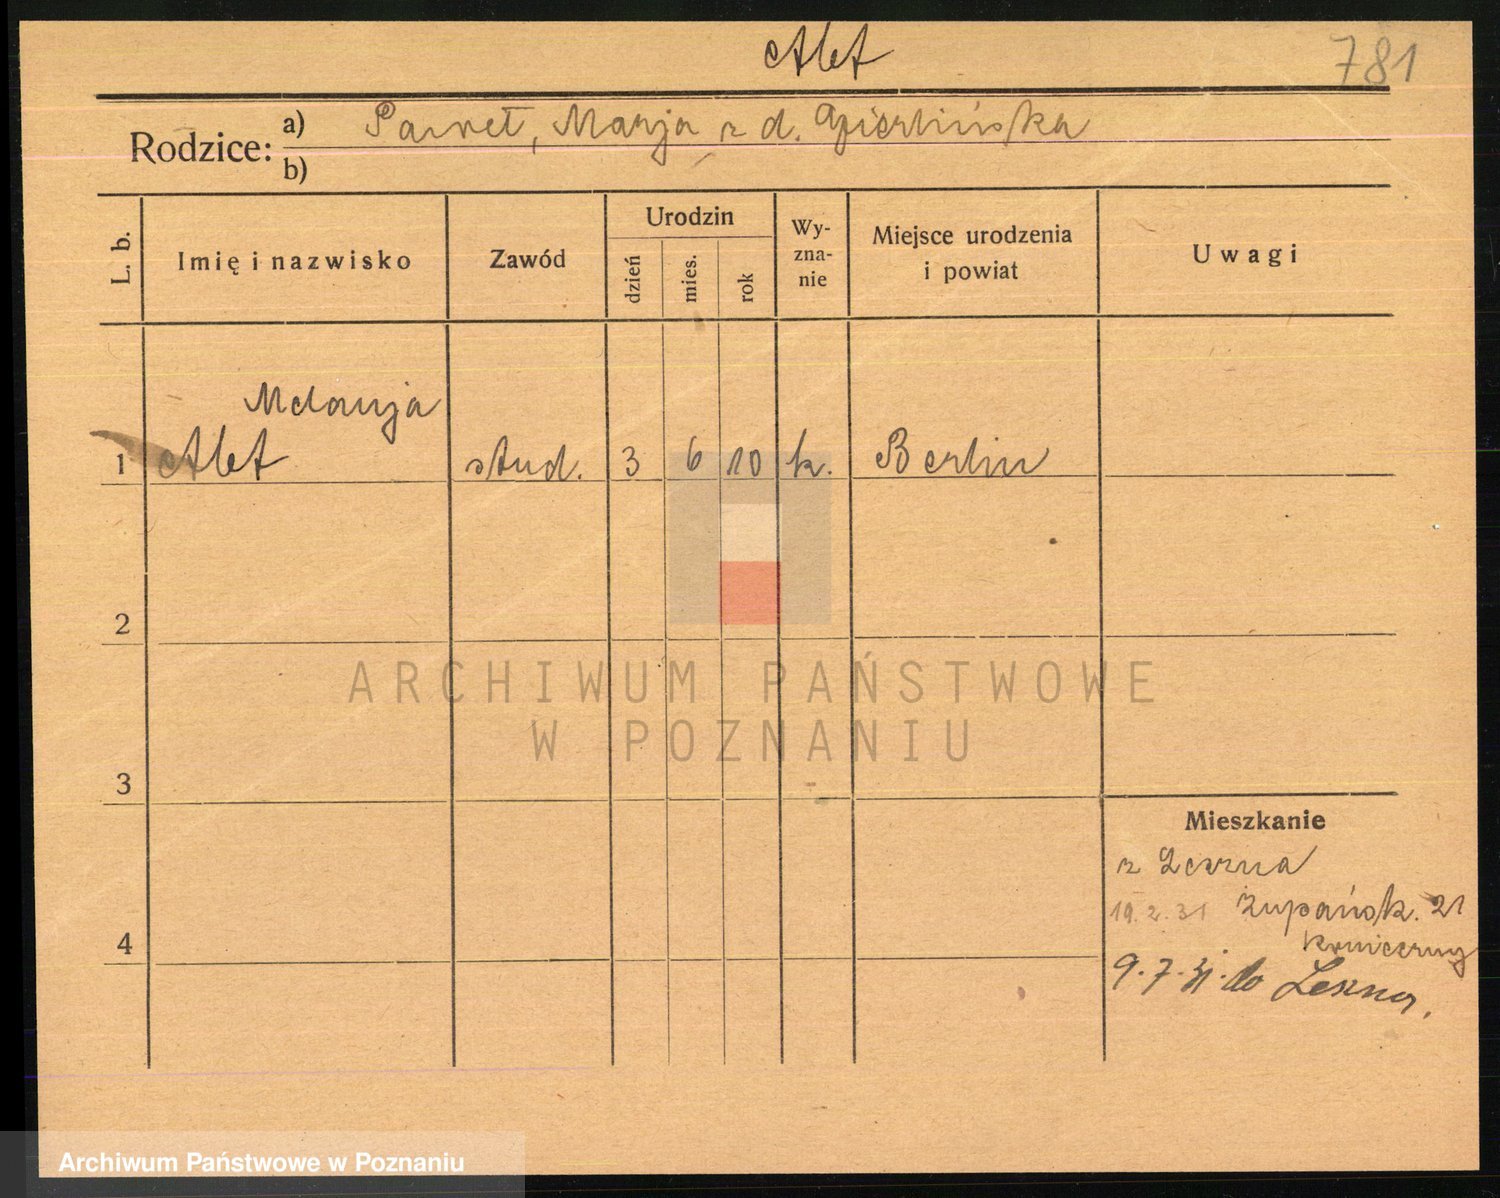 Alet
781
Rodzice: a) Paweł, Marja z d. Gierlińska
b)
L. b.
Imię i nazwisko
Zawód
Urodzin
dzień
mies.
rok
Wy-
zna-
nie
Miejsce urodzenia
i powiat
Uwagi
Melanja
1 Alet stud. 3 6 10 k. Berlin
2
ARCHIWUM PAŃSTWOWE
W POZNANIU
3
Mieszkanie
z Leszna
19.2.31 Żupańsk. 21
4
9.7.31. do Leszna,
Archiwum Państwowe w Poznaniu